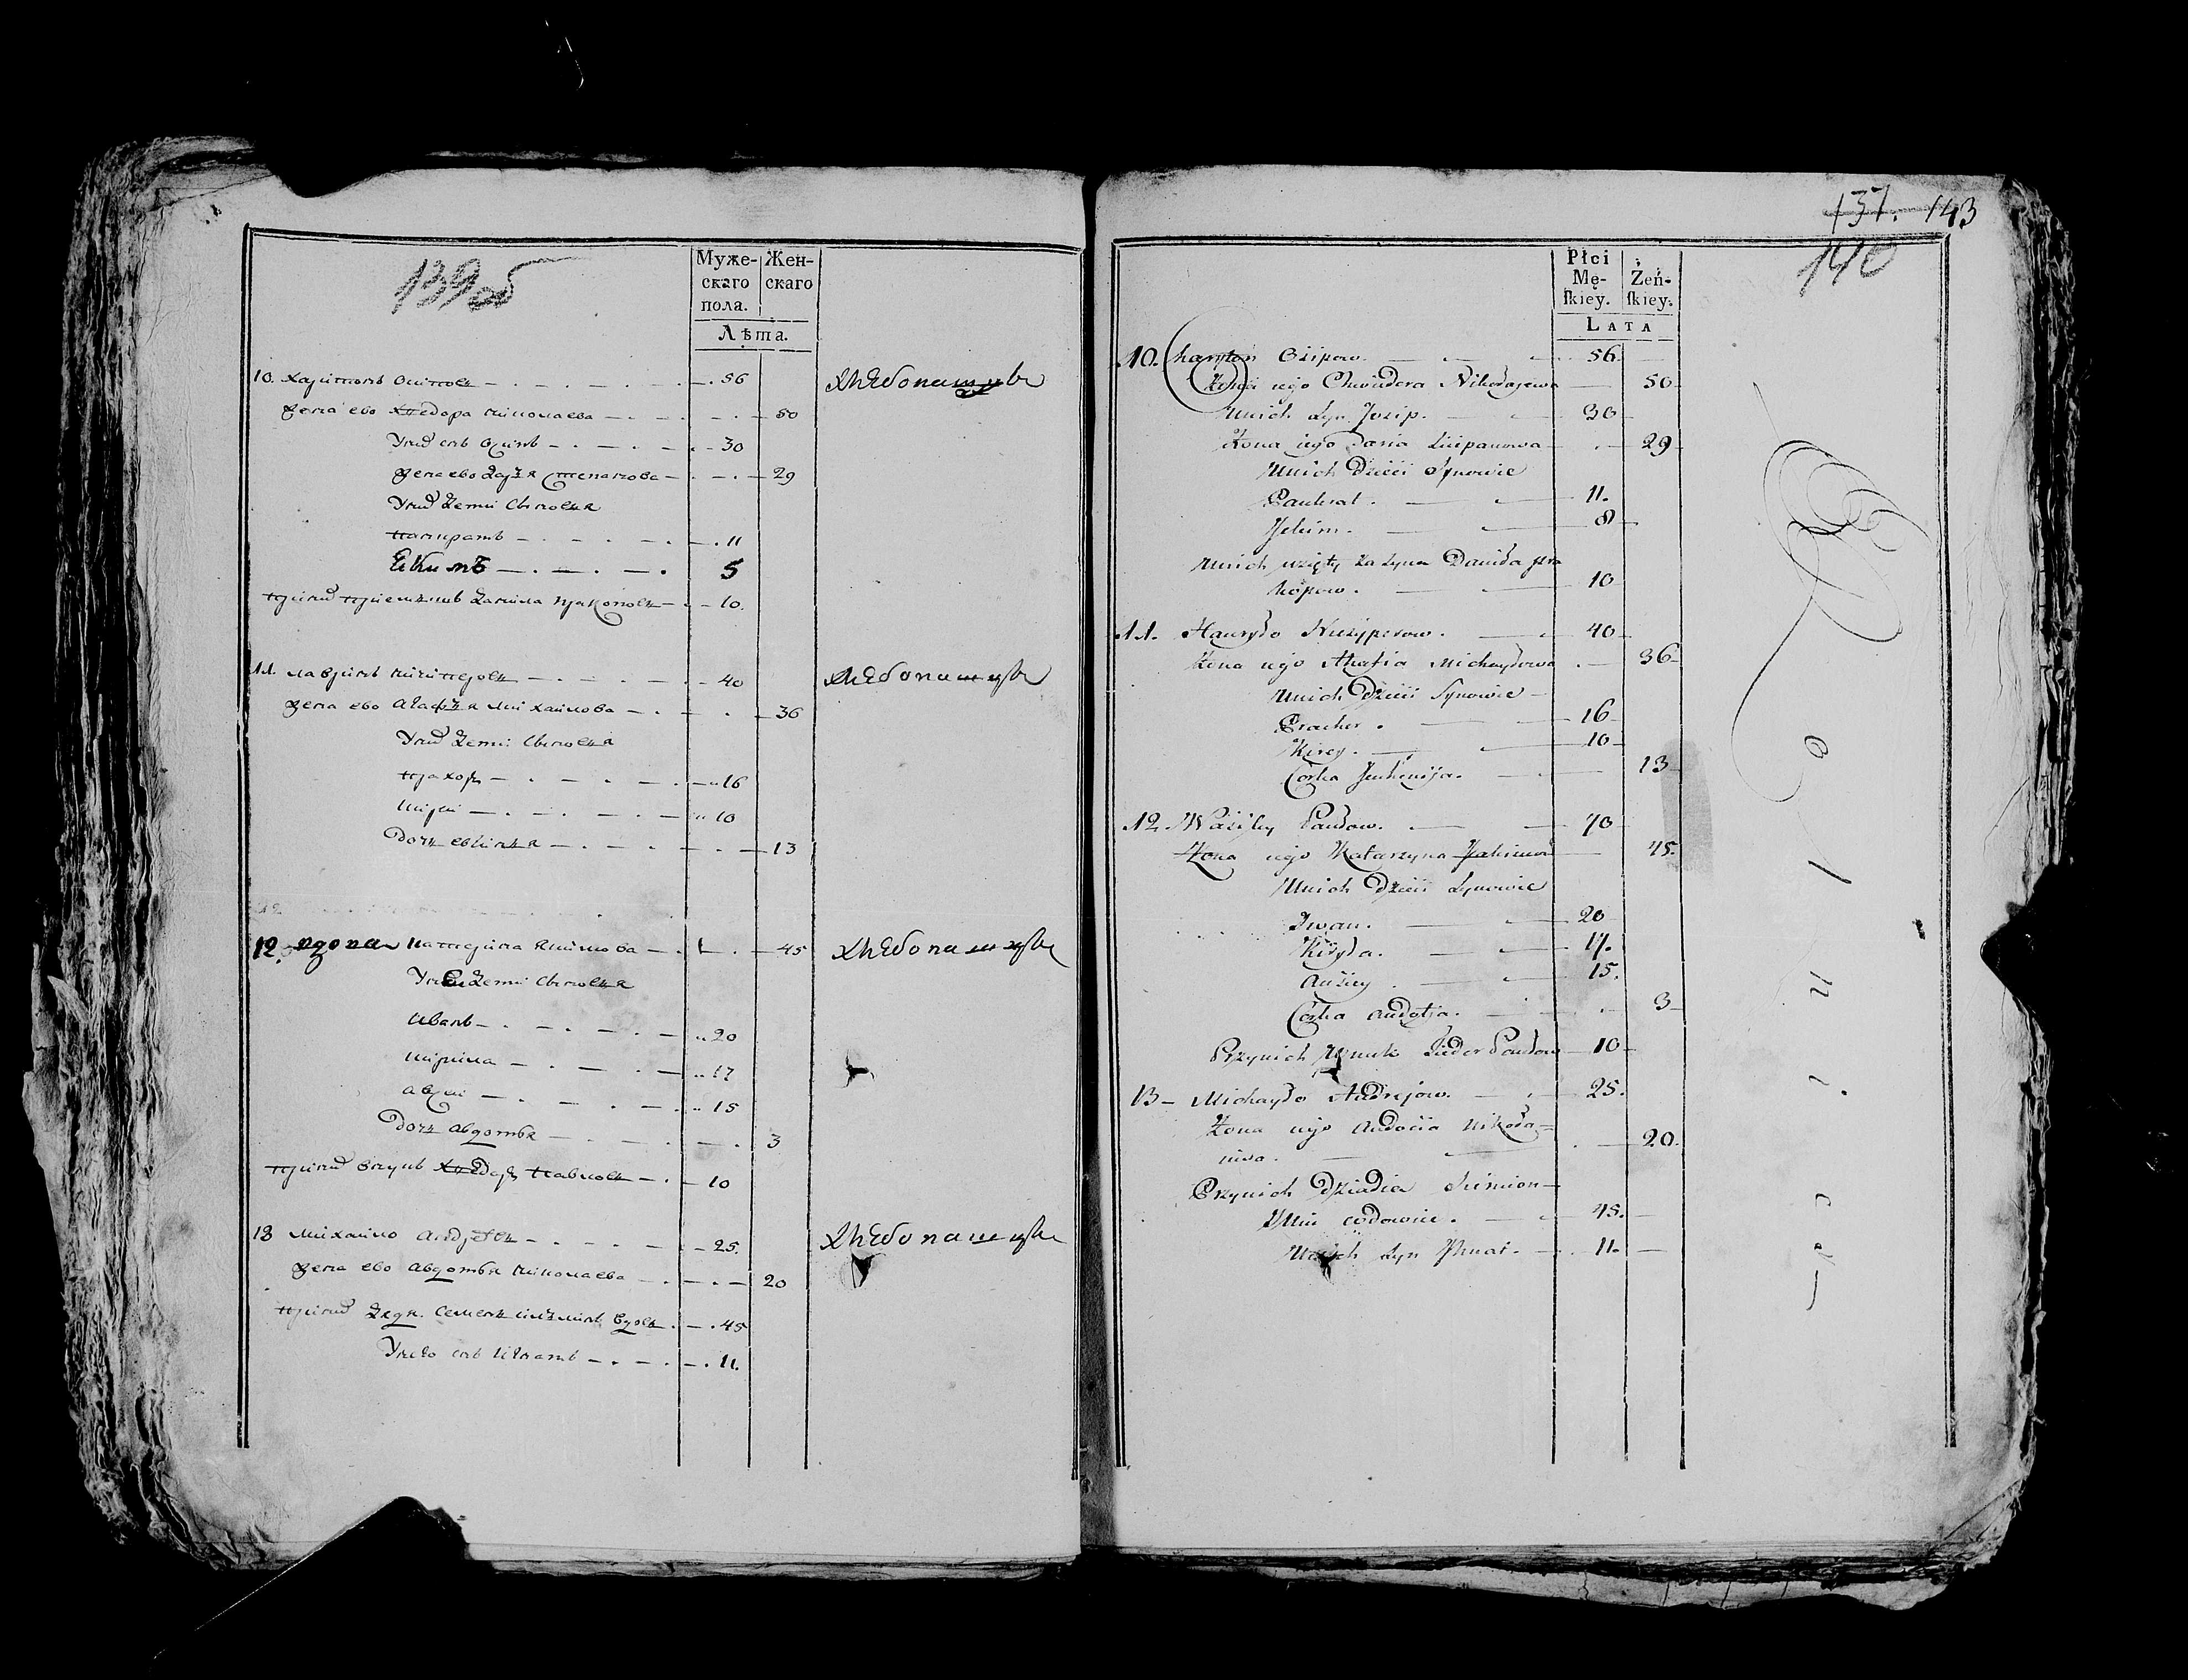 139об
Муже-
скаго
пола.
Жен-
скаго
Лѣта.
10. Харитонъ Осиповъ 56 хлебопашцы
жена ево Хведора Николаева 50
У нихъ снъ Осипъ 30
жена ево Дарья Степанова 29
У нихъ дети сыновья
Панкратъ 11
Екимъ 5
при нихъ приемышъ Данила Прокоповъ 10.
11. Лаврѣнъ Ничипоровъ 40 хлебопашцы
жена ево Агафья Михайлова 36
У нихъ дети сыновья
Прохоръ 16
Кирей 10
дочь Евгинья 13
12. вдова Катерина Якимова 45 хлебопашцы
У ней дети сыновья
Иванъ 20
Кирила 17
Авсей 15
дочь Авдотья 3
при нихъ внукъ Хведоръ Павловъ 10
13 Михайло Андреевъ 25. хлебопашцы
жена ево Авдотья Николаева 20
при нихъ дядя Семенъ Кузминъ вдовъ 45
У нево снъ Игнатъ 11.
137. 143
140
Płci
Mę-
skiey.
Żeń-
skiey.
LATA
10. Chariton Osipow. 56
Żona iego Chwiudora Nikołajewa 50
Unich syn Josip. 30
Żona iego Daria Sciepanowa 29
Unich Dzieci Synowie
Pankrat. 11.
Jekim. 8
Unich wzięty za syna Daniła Pro
kopow. 10
11. Hawryło Niczyperow. 40
Żona iego Ahafia Michayłowa 36
Unich Dzieci Synowie
Prachor. 16
Kirey. 10
Corka Jeuhenija. 13
12. Wasiley Pawłow. 70
Żona iego Katarzyna Jakimowa 45.
Unich Dzieci Synowie
Iwan. 20
Kiryła. 17.
Auxiey 15.
Corka Audotja. 3
Przynich Wnuk Fiedor Pawłow 10
13 Michayło Andrejow. 25.
Żona iego Audocia Nikoła=
iewa. 20.
Przynich Dziadia Siemion
Kuźmin wdowiec. 45.
Unich syn Ihnat. 11.
R o l n i c y